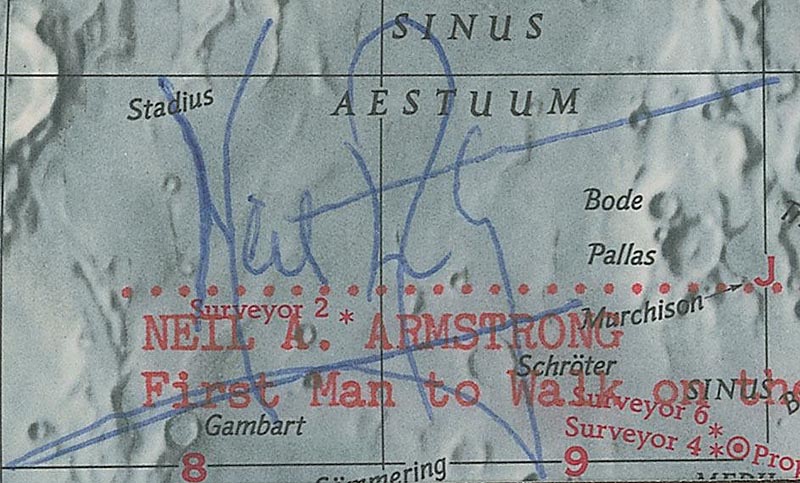 SINUS
Stadius
AESTUUM
Neil
Bode
Pallas
J
Surveyor 2 *
Murchison
NEIL A. ARMSTRONG
Schröter
First Man to Walk on the
SINUS
Surveyor 6 *
Gambart
Surveyor 4 *
8
9